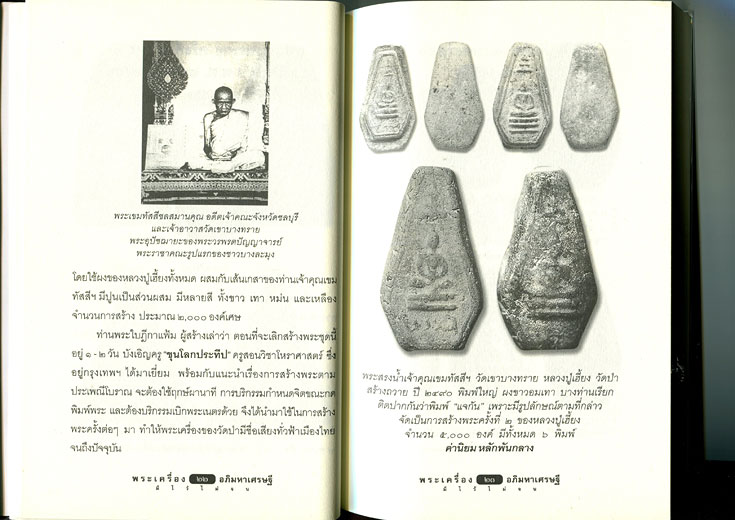 พระเขมทัสสีชลสมานคุณ อดีตเจ้าคณะจังหวัดชลบุรี
และเจ้าอาวาสวัดเขาบางทราย
พระอุปัชฌายะของพระวรพรตปัญญาจารย์
พระราชาคณะรูปแรกของชาวบางละมุง
โดยใช้ผงของหลวงปู่เฮี้ยงทั้งหมด ผสมกับเส้นเกสาของท่านเจ้าคุณเขม
ทัสสีฯ มีปูนเป็นส่วนผสม มีหลายสี ทั้งขาว เทา หม่น และเหลือง
จำนวนการสร้าง ประมาณ ๒,๐๐๐ องค์เศษ
ท่านพระใบฎีกาแฟ้ม ผู้สร้างเล่าว่า ตอนที่จะเลิกสร้างพระชุดนี้
อยู่ ๑ - ๒ วัน บังเอิญครู "ขุนโลกประทีป" ครูสอนวิชาโหราศาสตร์ ซึ่ง
อยู่กรุงเทพฯ ได้มาเยี่ยม พร้อมกับแนะนำเรื่องการสร้างพระตาม
ประเพณีโบราณ จะต้องใช้ฤกษ์ผานาที การบริกรรมกำหนดจิตขณะกด
พิมพ์พระ และต้องบริกรรมเบิกพระเนตรด้วย จึงได้นำมาใช้ในการสร้าง
พระครั้งต่อๆ มา ทำให้พระเครื่องของวัดป่ามีชื่อเสียงทั่วฟ้าเมืองไทย
จนถึงปัจจุบัน
พระเครื่อง ๒๒ อภิมหาเศรษฐี
มีไว้ไม่จน
พระสรงน้ำเจ้าคุณเขมทัสสีฯ วัดเขาบางทราย หลวงปู่เฮี้ยง วัดป่า
สร้างถวาย ปี ๒๔๙๐ พิมพ์ใหญ่ ผงขาวอมเทา บางท่านเรียก
ติดปากกันว่าพิมพ์ "แจกัน" เพราะมีรูปลักษณ์ตามที่กล่าว
จัดเป็นการสร้างพระครั้งที่ ๒ ของหลวงปู่เฮี้ยง
จำนวน ๕,๐๐๐ องค์ มีทั้งหมด ๖ พิมพ์
ค่านิยม หลักพันกลาง
พระเครื่อง ๒๓ อภิมหาเศรษฐี
มีไว้ไม่จน